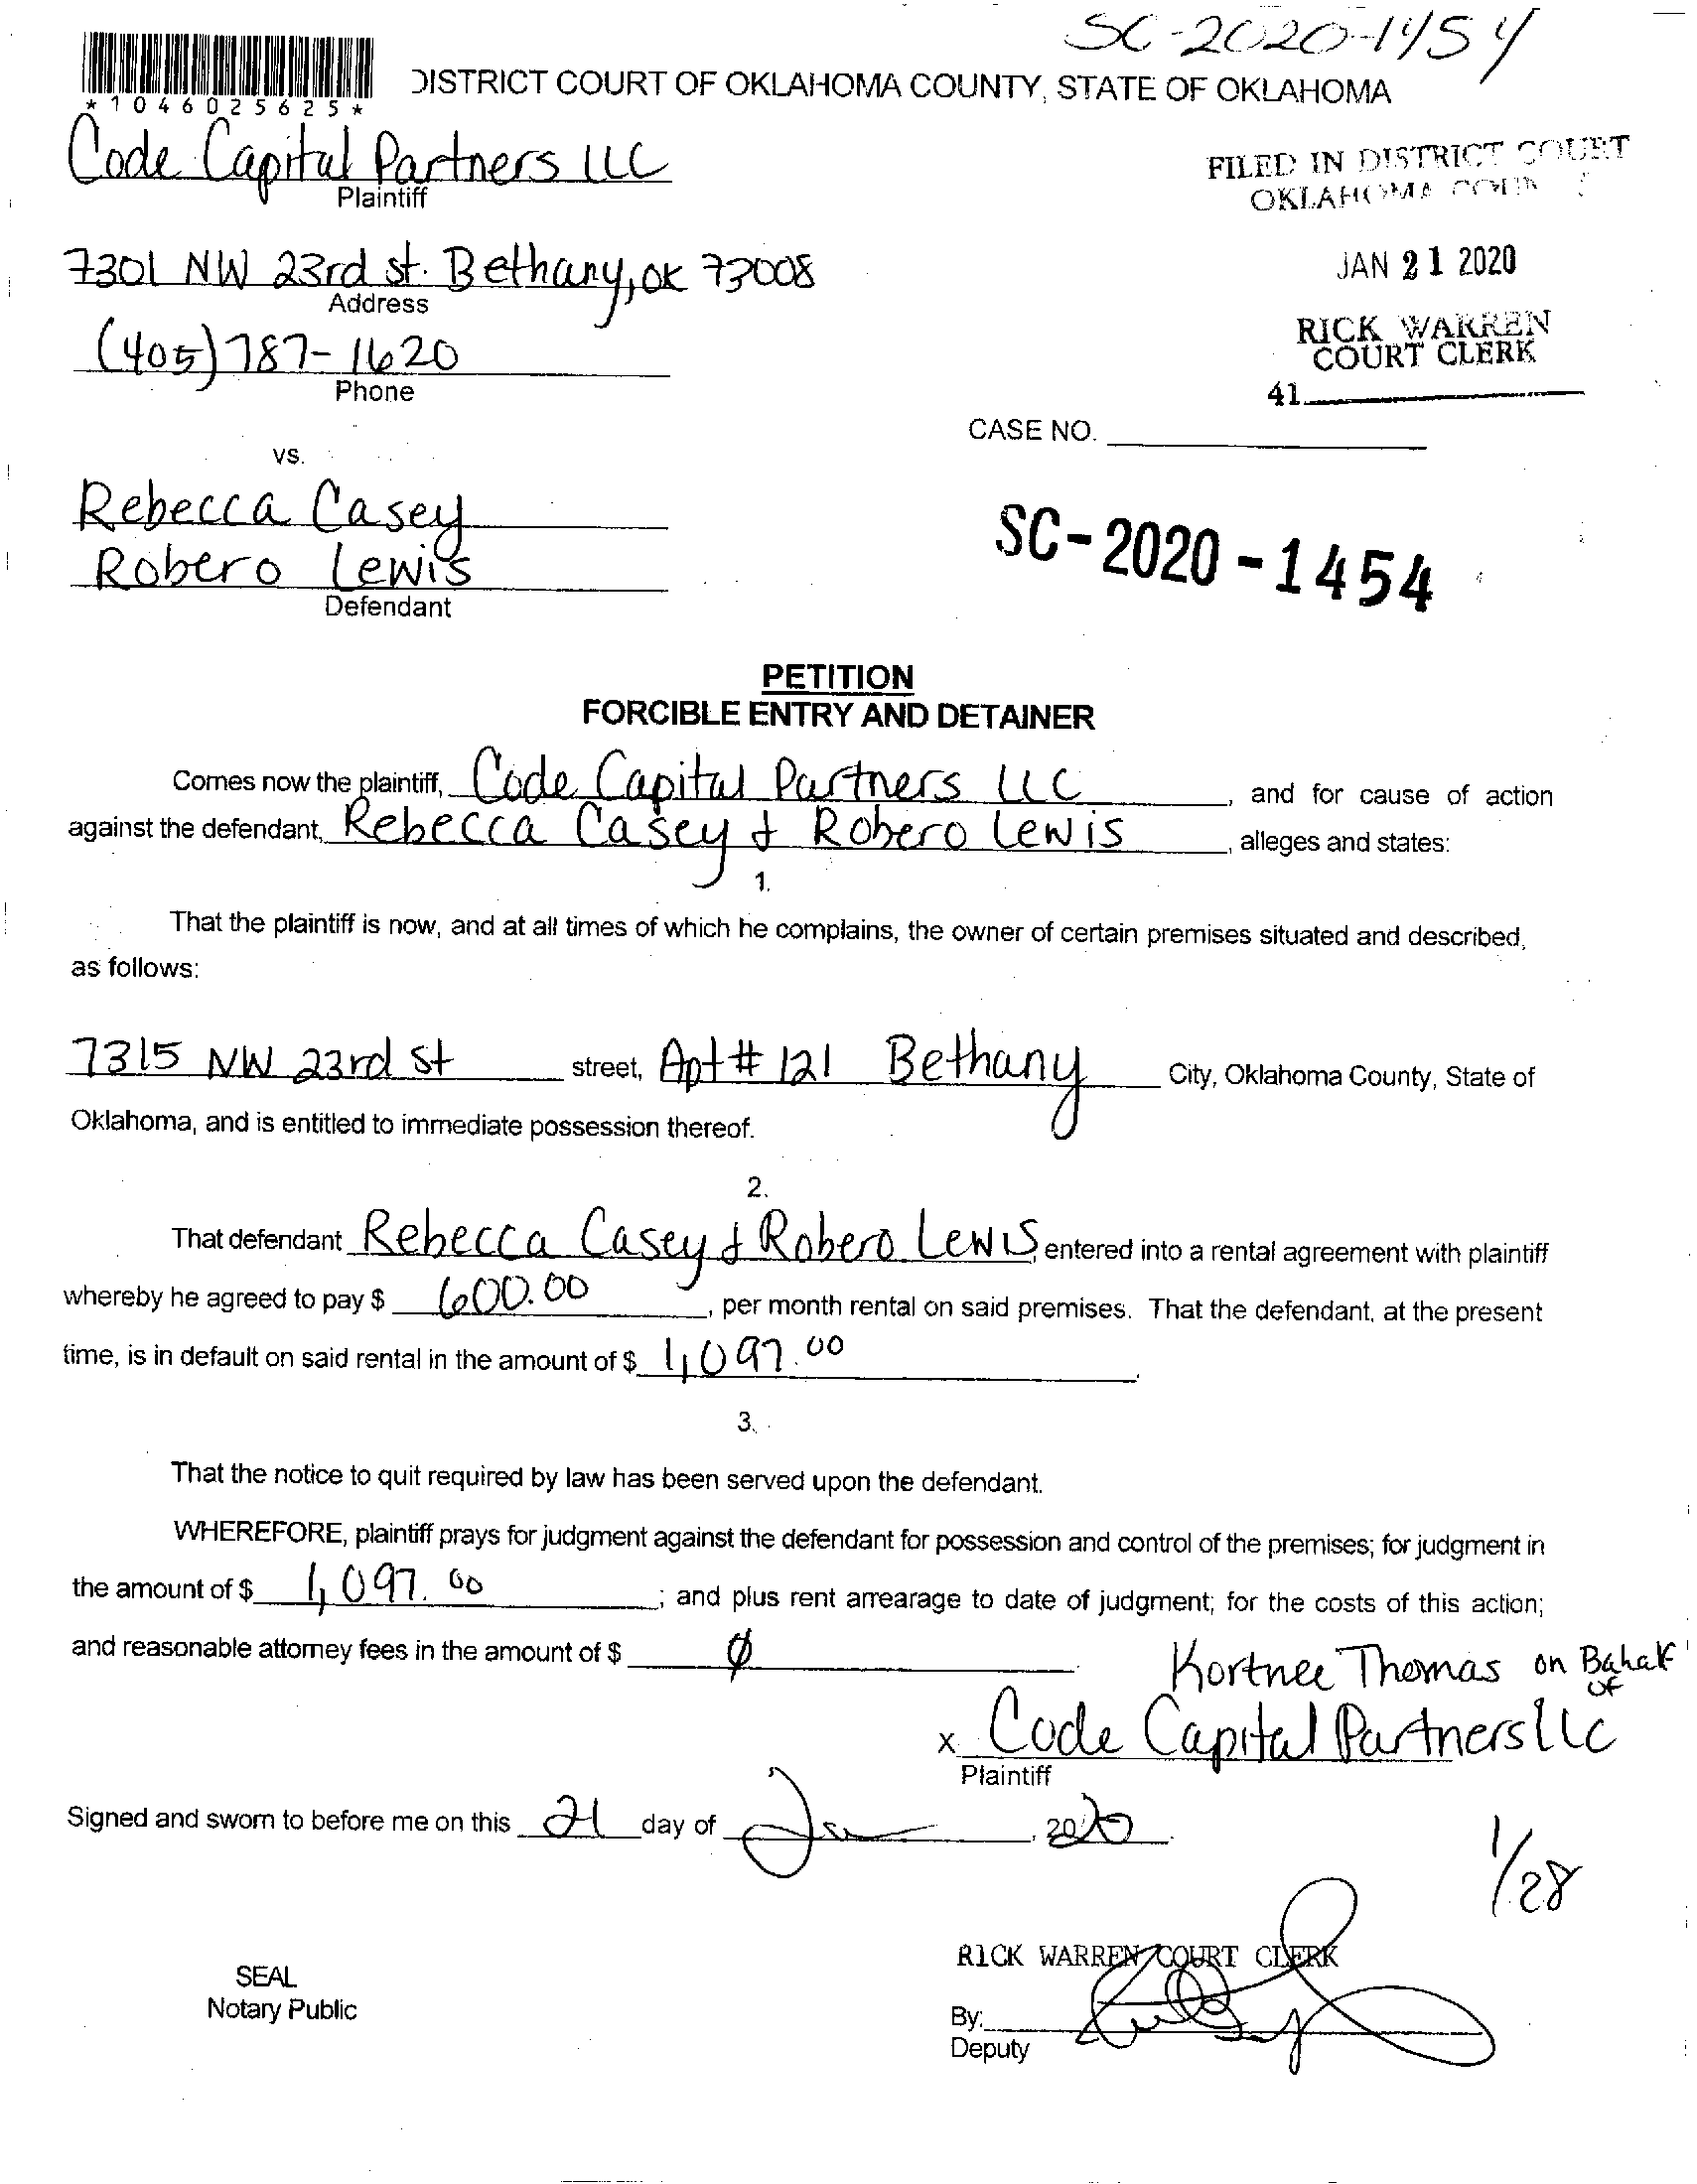 SC-2020-1454
*1046025625*
DISTRICT COURT OF OKLAHOMA COUNTY, STATE OF OKLAHOMA
Code Capital Partners LLC
Plaintiff
FILED IN DISTRICT COURT
OKLAHOMA COUN
7301 NW 23rd st. Bethany, OK 73008
Address
JAN 21 2020
(405) 787-1620
Phone
RICK WARREN
COURT CLERK
41
CASE NO.
vs.
Rebecca Casey
Robero Lewis
Defendant
SC-2020-1454
PETITION
FORCIBLE ENTRY AND DETAINER
Comes now the plaintiff, Code Capital Partners LLC, and for cause of action
against the defendant, Rebecca Casey & Robero Lewis, alleges and states:
1.
That the plaintiff is now, and at all times of which he complains, the owner of certain premises situated and described,
as follows:
7315 NW 23rd St street, Apt # 121 Bethany City, Oklahoma County, State of
Oklahoma, and is entitled to immediate possession thereof.
2.
That defendant Rebecca Casey & Robero Lewis, entered into a rental agreement with plaintiff
whereby he agreed to pay $ 600.00, per month rental on said premises. That the defendant, at the present
time, is in default on said rental in the amount of $ 1,097.00.
3.
That the notice to quit required by law has been served upon the defendant.
WHEREFORE, plaintiff prays for judgment against the defendant for possession and control of the premises; for judgment in
the amount of $ 1,097.00; and plus rent arrearage to date of judgment; for the costs of this action;
and reasonable attorney fees in the amount of $ 0.
Kortnee Thomas on Bahalf of
x Code Capital Partners llc
Plaintiff
Signed and sworn to before me on this 21 day of Jan, 2020.
1/28
RICK WARREN COURT CLERK
SEAL
Notary Public
By:
Deputy